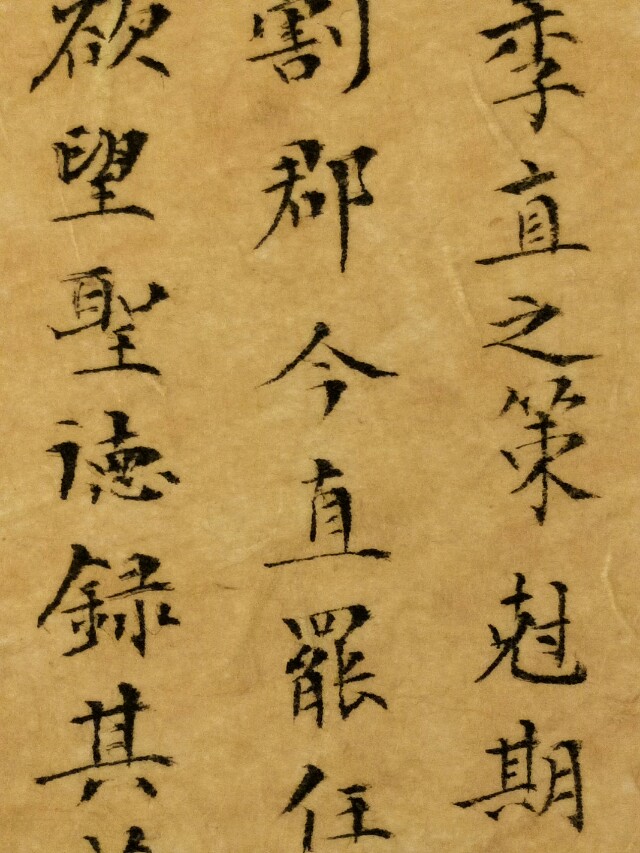 季直之策尅期
割郡今直罷任
欲望聖德録其